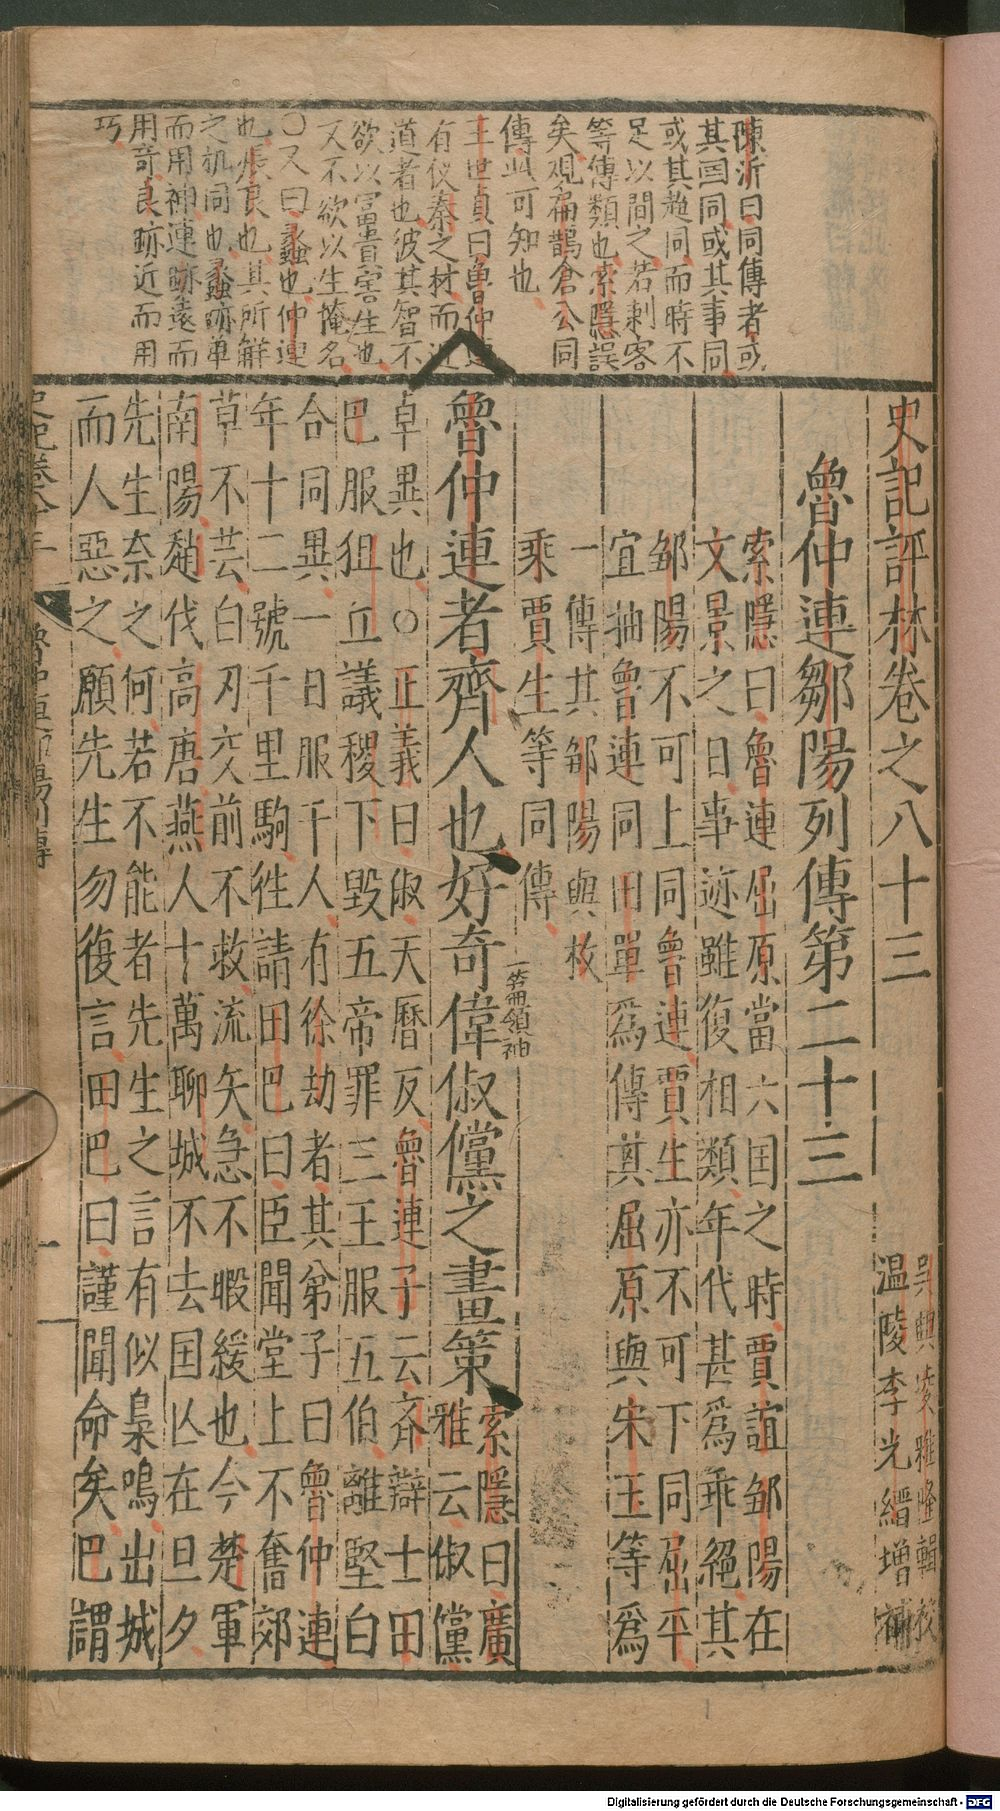 陳沂曰同傳者或
其国同或其事同
或其趣同而時不
足以間之若刺客
等傳類也索隱誤
矣觀扁鵲倉公同
傳此可知也
王世貞曰魯仲連
有仪秦之材而近
道者也彼其智不
欲以富貴害生也
又不欲以生掩名
○又曰蠡也仲連
也張良也其所解
之机同也蠡跡單
而用神連跡遠而
用奇良跡近而用
巧
史記評林卷之八十三
吳興凌稚隆輯校
温陵李光縉增補
魯仲連鄒陽列傳第二十三
索隱曰魯連屈原當六国之時賈誼邹陽在
文景之日事迹雖復相類年代甚爲乖絕其
邹陽不可上同魯連賈生亦不可下同屈平
宜抽魯連同田單爲傳其屈原與宋玉等爲
一傳其邹陽與枚
乘賈生等同傳
一篇領袖
魯仲連者齊人也好奇偉俶儻之畫策
索隱曰廣
雅云俶儻
卓異也○正義曰俶天曆反魯連子云齐辯士田
巴服狙丘議稷下毀五帝罪三王服五伯離堅白
合同異一日服千人有徐劫者其弟子曰魯仲連
年十二號千里駒徃請田巴曰臣聞堂上不奮郊
草不芸白刃交前不救流矢急不暇緩也今楚軍
南陽趙伐高唐燕人十萬聊城不去国亾在旦夕
先生奈之何若不能者先生之言有似梟鳴出城
而人惡之願先生勿復言田巴曰謹聞命矣巴謂
史記卷八十三
魯仲連邹陽列傳
一
Digitalisierung gefördert durch die Deutsche Forschungsgemeinschaft - DFG